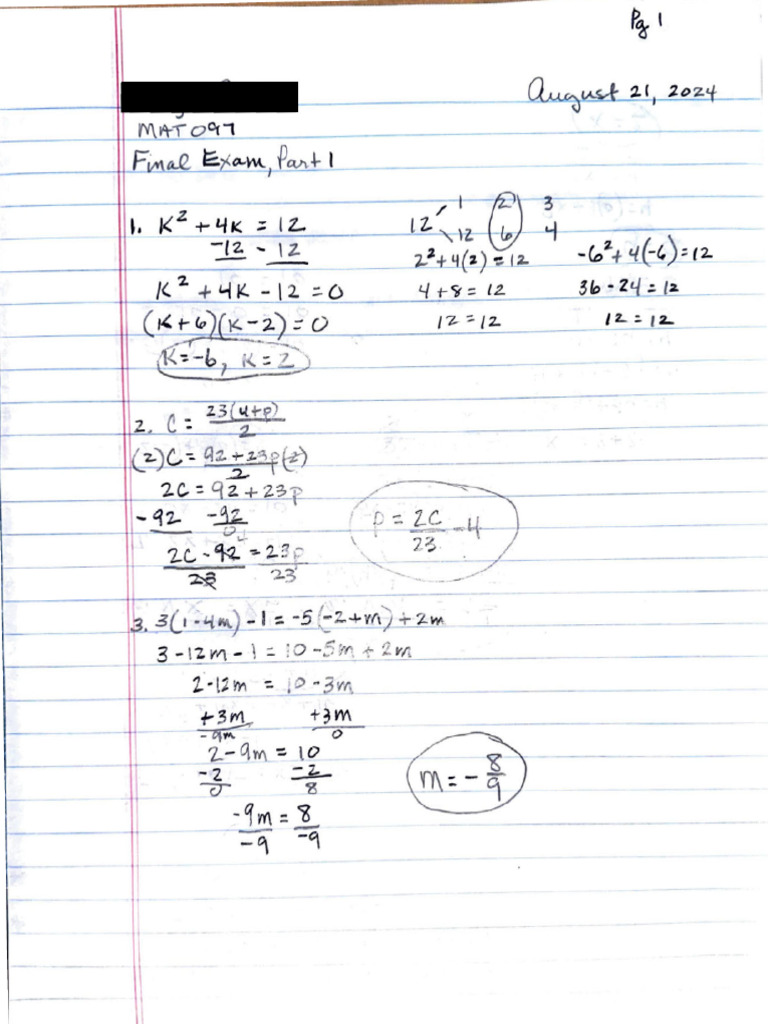 Pg 1
August 21, 2024
MAT097
Final Exam, Part 1
1. K² + 4K = 12
-12 - 12
K² + 4K - 12 = 0
(K+6)(K-2) = 0
K=-6, K=2
12 1 2 3
12 6 4
2² + 4(2) = 12
4 + 8 = 12
12 = 12
-6² + 4(-6) = 12
36 - 24 = 12
12 = 12
2. C = 23(4+p)/2
(2)C = 92 + 23p(2)/2
2C = 92 + 23p
-92 -92
0
2C - 92 = 23p
23 23
p = 2C/23 - 4
3. 3(1-4m) - 1 = -5(-2+m) + 2m
3 - 12m - 1 = 10 - 5m + 2m
2 - 12m = 10 - 3m
+3m +3m
-9m 0
2 - 9m = 10
-2 -2
0 8
-9m = 8
-9 -9
m = - 8/9